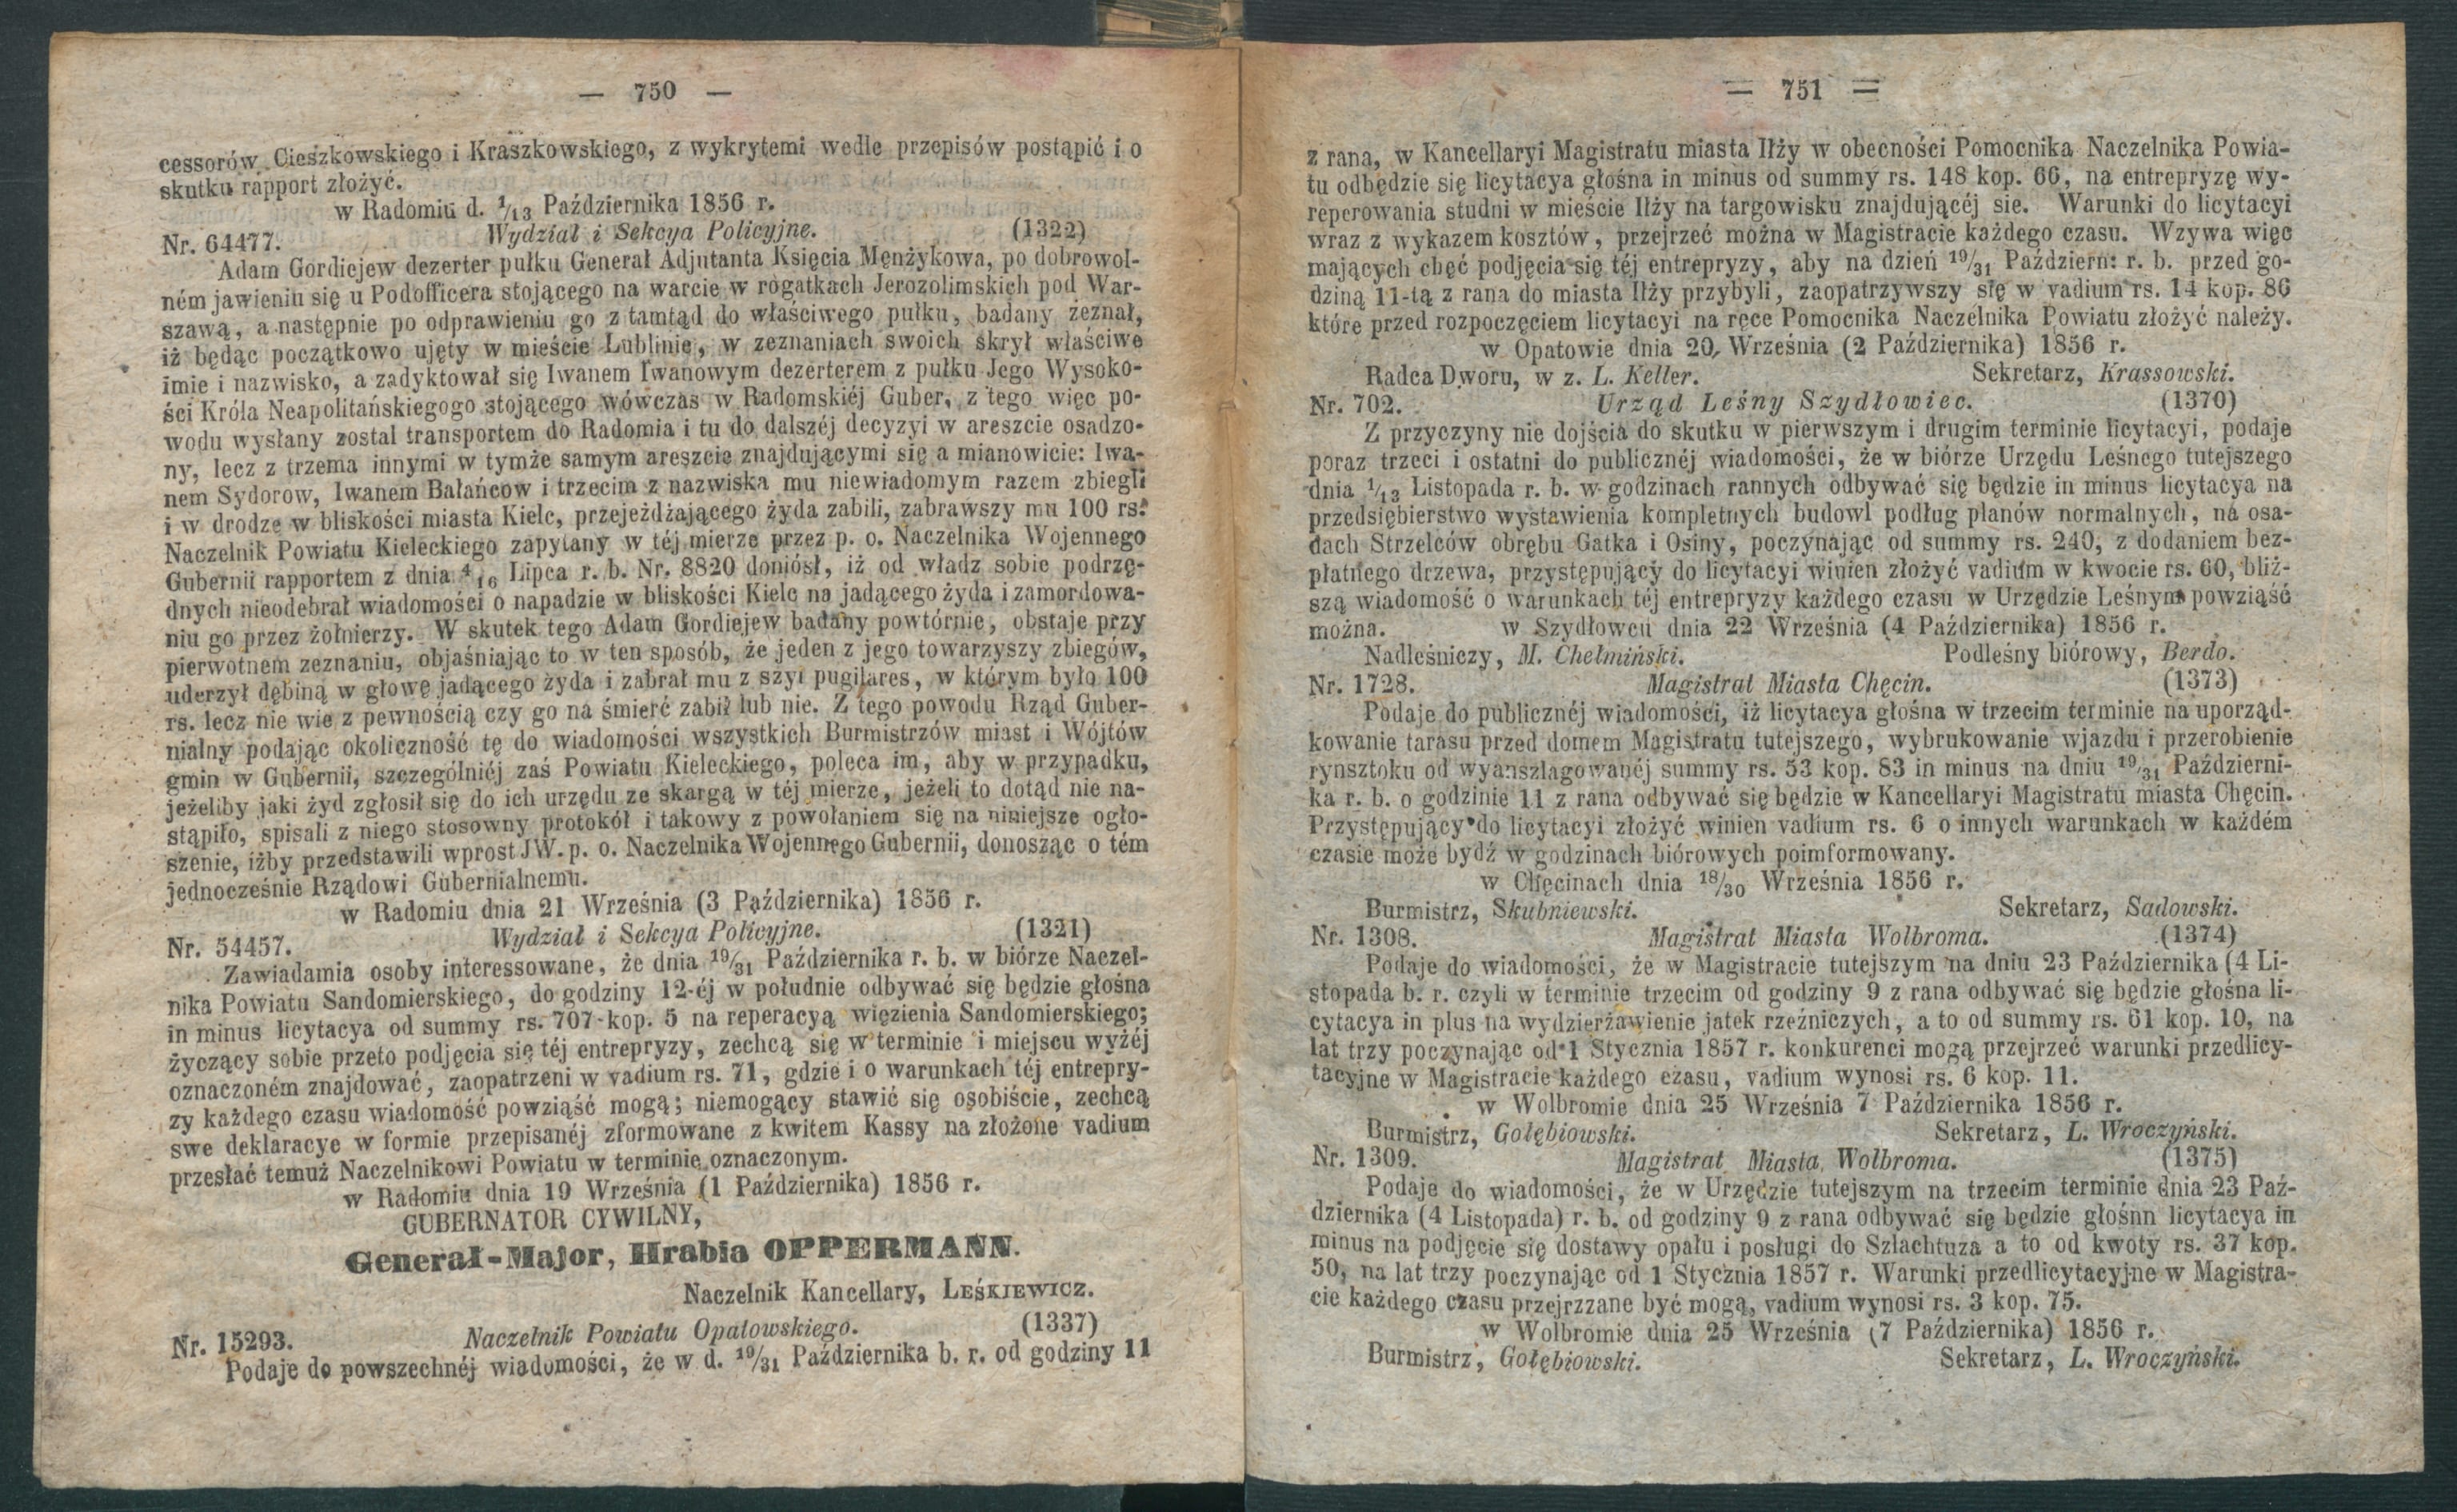 — 750 —
cessorów Cieszkowskiego i Kraszkowskiego, z wykrytemi wedle przepisów postąpić i o
skutku rapport złożyć.
w Radomiu d. 1/13 Października 1856 r.
Nr. 64477. Wydział i Sekcya Policyjne. (1322)
Adam Gordiejew dezerter pułku Generał Adjutanta Księcia Menżykowa, po dobrowol-
ném jawieniu się u Podofficera stojącego na warcie w rogatkach Jerozolimskich pod War-
szawą, a następnie po odprawieniu go z tamtąd do właściwego pułku, badany zeznał,
iż będąc początkowo ujęty w mieście Lublinie, w zeznaniach swoich skrył właściwe
imie i nazwisko, a zadyktował się Iwanem Iwanowym dezerterem z pułku Jego Wysoko-
ści Króla Neapolitańskiegogo stojącego wówczas w Radomskiéj Guber, z tego więc po-
wodu wysłany zostal transportem do Radomia i tu do dalszéj decyzyi w areszcie osadzo-
ny, lecz z trzema innymi w tymże samym areszcie znajdującymi się a mianowicie: Iwa-
nem Sydorow, Iwanem Bałańcow i trzecim z nazwiska mu niewiadomym razem zbiegli
i w drodze w bliskości miasta Kielc, przejeżdżającego żyda zabili, zabrawszy mu 100 rs.
Naczelnik Powiatu Kieleckiego zapytany w téj mierze przez p. o. Naczelnika Wojennego
Gubernii rapportem z dnia 4/16 Lipca r. b. Nr. 8820 doniósł, iż od władz sobie podrzę-
dnych nieodebrał wiadomości o napadzie w bliskości Kielc na jadącego żyda i zamordowa-
niu go przez żołnierzy. W skutek tego Adam Gordiejew badany powtórnie, obstaje przy
pierwotnem zeznaniu, objaśniając to w ten sposób, że jeden z jego towarzyszy zbiegów,
uderzył dębiną w głowę jadącego żyda i zabrał mu z szyi pugilares, w którym było 100
rs. lecz nie wie z pewnością czy go na śmierć zabił lub nie. Z tego powodu Rząd Guber-
nialny podając okoliczność tę do wiadomości wszystkich Burmistrzów miast i Wójtów
gmin w Gubernii, szczególniéj zaś Powiatu Kieleckiego, poleca im, aby w przypadku,
jeżeliby jaki żyd zgłosił się do ich urzędu ze skargą w téj mierze, jeżeli to dotąd nie na-
stąpiło, spisali z niego stosowny protokół i takowy z powołaniem się na niniejsze ogło-
szenie, iżby przedstawili wprost JW. p. o. Naczelnika Wojennego Gubernii, donosząc o tém
jednocześnie Rządowi Gubernialnemu.
w Radomiu dnia 21 Września (3 Października) 1856 r.
Nr. 54457. Wydział i Sekcya Policyjne. (1321)
Zawiadamia osoby interessowane, że dnia 19/31 Października r. b. w biórze Naczel-
nika Powiatu Sandomierskiego, do godziny 12-éj w południe odbywać się będzie głośna
in minus licytacya od summy rs. 707 kop. 5 na reperacyą więzienia Sandomierskiego;
życzący sobie przeto podjęcia się téj entrepryzy, zechcą się w terminie i miejscu wyżéj
oznaczoném znajdować, zaopatrzeni w vadium rs. 71, gdzie i o warunkach téj entrepry-
zy każdego czasu wiadomość powziąść mogą; niemogący stawić się osobiście, zechcą
swe deklaracye w formie przepisanéj zformowane z kwitem Kassy na złożone vadium
przesłać temuż Naczelnikowi Powiatu w terminie oznaczonym.
w Radomiu dnia 19 Września (1 Października) 1856 r.
GUBERNATOR CYWILNY,
Generał-Major, Hrabia OPPERMANN.
Naczelnik Kancellary, LEŚKIEWICZ.
Nr. 15293. Naczelnik Powiatu Opatowskiego. (1337)
Podaje do powszechnéj wiadomości, że w d. 19/31 Października b. r. od godziny 11
= 751 =
z rana, w Kancellaryi Magistratu miasta Iłży w obecności Pomocnika Naczelnika Powia-
tu odbędzie się licytacya głośna in minus od summy rs. 148 kop. 66, na entrepryzę wy-
reperowania studni w mieście Iłży na targowisku znajdującéj sie. Warunki do licytacyi
wraz z wykazem kosztów, przejrzeć można w Magistracie każdego czasu. Wzywa więc
mających chęć podjęcia się téj entrepryzy, aby na dzień 19/31 Październ: r. b. przed go-
dziną 11-tą z rana do miasta Iłży przybyli, zaopatrzywszy się w vadium rs. 14 kop. 86
które przed rozpoczęciem licytacyi na ręce Pomocnika Naczelnika Powiatu złożyć należy.
w Opatowie dnia 20 Września (2 Października) 1856 r.
Radca Dworu, w z. L. Keller. Sekretarz, Krassowski.
Nr. 702. Urząd Leśny Szydłowiec. (1370)
Z przyczyny nie dojścia do skutku w pierwszym i drugim terminie licytacyi, podaje
poraz trzeci i ostatni do publicznéj wiadomości, że w biórze Urzędu Leśnego tutejszego
dnia 1/13 Listopada r. b. w godzinach rannych odbywać się będzie in minus licytacya na
przedsiębierstwo wystawienia kompletnych budowl podług planów normalnych, na osa-
dach Strzelców obrębu Gatka i Osiny, poczynając od summy rs. 240, z dodaniem bez-
płatnego drzewa, przystępujący do licytacyi winien złożyć vadium w kwocie rs. 60, bliż-
szą wiadomość o warunkach téj entrepryzy każdego czasu w Urzędzie Leśnym powziąść
można. w Szydłowcu dnia 22 Września (4 Października) 1856 r.
Nadleśniczy, M. Chełmiński. Podleśny biórowy, Berdo.
Nr. 1728. Magistrat Miasta Chęcin. (1373)
Podaje do publicznéj wiadomości, iż licytacya głośna w trzecim terminie na uporząd-
kowanie tarasu przed domem Magistratu tutejszego, wybrukowanie wjazdu i przerobienie
rynsztoku od wyanszlagowanéj summy rs. 53 kop. 83 in minus na dniu 19/31 Październi-
ka r. b. o godzinie 11 z rana odbywać się będzie w Kancellaryi Magistratu miasta Chęcin.
Przystępujący do licytacyi złożyć winien vadium rs. 6 o innych warunkach w każdém
czasie może bydź w godzinach biórowych poimformowany.
w Chęcinach dnia 18/30 Września 1856 r.
Burmistrz, Skubniewski. Sekretarz, Sadowski.
Nr. 1308. Magistrat Miasta Wolbroma. (1374)
Podaje do wiadomości, że w Magistracie tutejszym na dniu 23 Października (4 Li-
stopada b. r. czyli w terminie trzecim od godziny 9 z rana odbywać się będzie głośna li-
cytacya in plus na wydzierżawienie jatek rzeźniczych, a to od summy rs. 61 kop. 10, na
lat trzy poczynając od 1 Stycznia 1857 r. konkurenci mogą przejrzeć warunki przedlicy-
tacyjne w Magistracie każdego czasu, vadium wynosi rs. 6 kop. 11.
w Wolbromie dnia 25 Września 7 Października 1856 r.
Burmistrz, Gołębiowski. Sekretarz, L. Wroczyński.
Nr. 1309. Magistrat Miasta Wolbroma. (1375)
Podaje do wiadomości, że w Urzędzie tutejszym na trzecim terminie dnia 23 Paź-
dziernika (4 Listopada) r. b. od godziny 9 z rana odbywać się będzie głośnn licytacya in
minus na podjęcie się dostawy opału i posługi do Szlachtuza a to od kwoty rs. 37 kop.
50, na lat trzy poczynając od 1 Stycznia 1857 r. Warunki przedlicytacyjne w Magistra-
cie każdego czasu przejrzzane być mogą, vadium wynosi rs. 3 kop. 75.
w Wolbromie dnia 25 Września (7 Października) 1856 r.
Burmistrz, Gołębiowski. Sekretarz, L. Wroczyński.